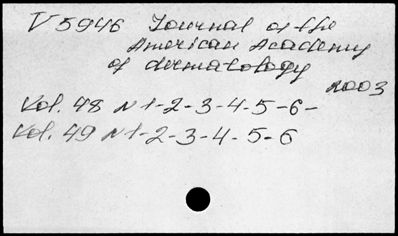 V5946 Journal of the
American Academy
of dermatology
2003
Vol. 48 N 1-2-3-4-5-6-
Vol. 49 N 1-2-3-4-5-6